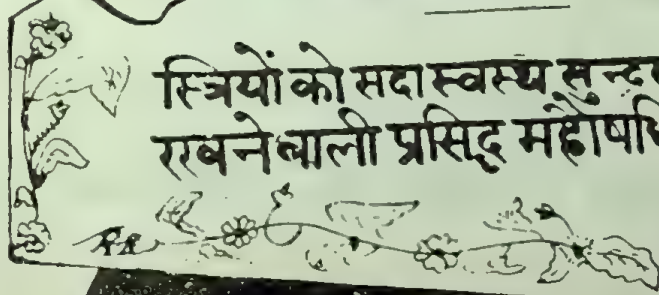 स्त्रियों को सदा स्वस्थ सुन्द
रखने वाली प्रसिद्ध महौषधि